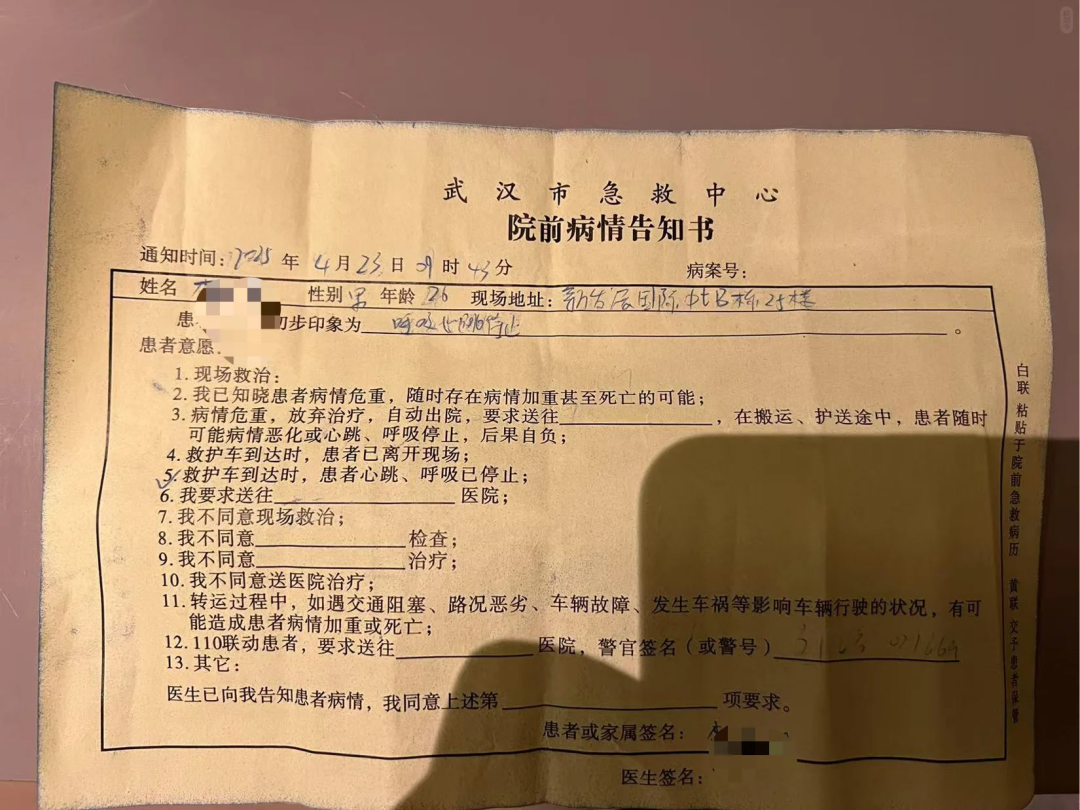 武汉市急救中心
院前病情告知书
通知时间：2025年4月23日09时43分 病案号：
姓名 性别 男 年龄 26 现场地址：新发展国际中心B栋25楼
患 初步印象为 呼吸心跳停止。
患者意愿：
1. 现场救治：
2. 我已知晓患者病情危重，随时存在病情加重甚至死亡的可能；
3. 病情危重，放弃治疗，自动出院，要求送往，在搬运、护送途中，患者随时
可能病情恶化或心跳、呼吸停止，后果自负；
4. 救护车到达时，患者已离开现场；
5. 救护车到达时，患者心跳、呼吸已停止；
6. 我要求送往 医院；
7. 我不同意现场救治；
8. 我不同意 检查；
9. 我不同意 治疗；
10. 我不同意送医院治疗；
11. 转运过程中，如遇交通阻塞、路况恶劣、车辆故障、发生车祸等影响车辆行驶的状况，有可
能造成患者病情加重或死亡；
12. 110联动患者，要求送往 医院，警官签名（或警号）
13. 其它：
医生已向我告知患者病情，我同意上述第 项要求。
患者或家属签名：
医生签名：
白联 粘贴于院前急救病历 黄联 交予患者保管